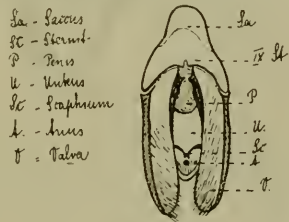 Sa - Saccus
St - Sternit.
P - Penis
U - Unkus
Sc - Scaphium
A. - Anus
V = Valva
Sa
IX St
P
U.
Sc
A
V.